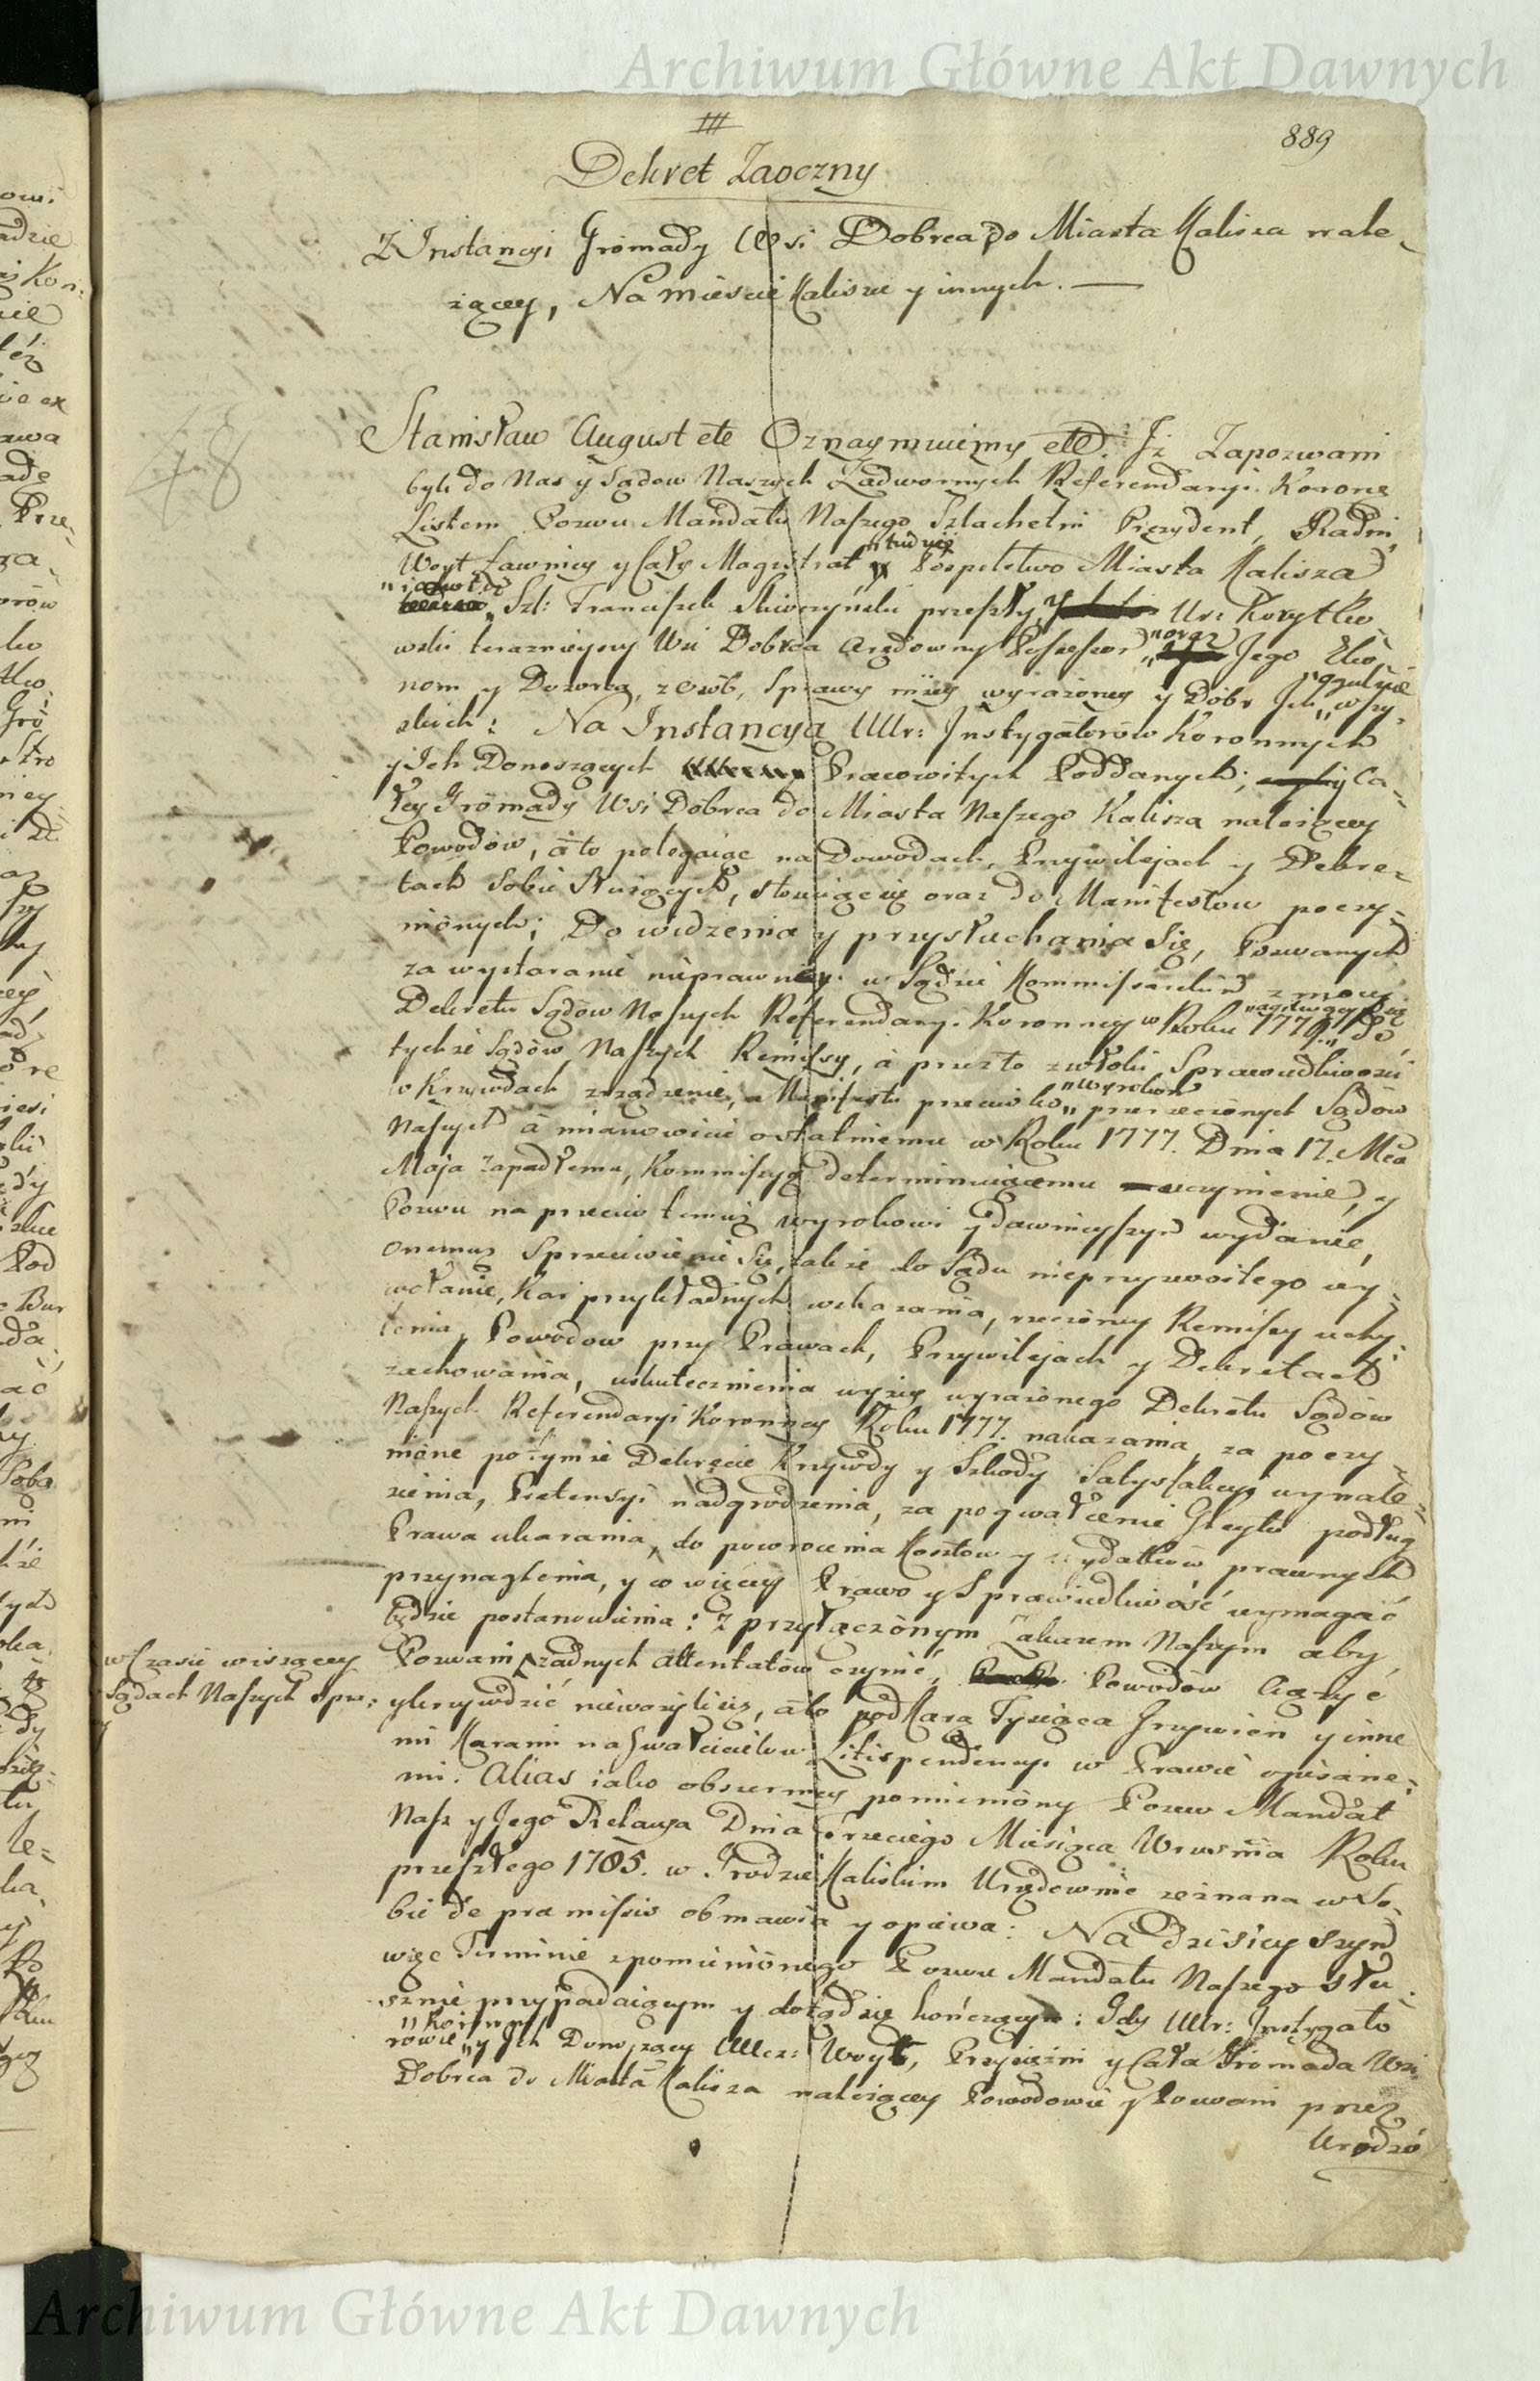 Archiwum Główne Akt Dawnych
III
889
Dekret Zaoczny
Z Instancyi Gromady Wsi Dobrca do Miasta Kalisza nale-
żącey, Na Mieście Kalisze y innych. —
48
Stanisław August etc Oznaymuiemy etc. Iż Zapozwani
byli do Nas y Sądow Naszych Zadwornych Referendaryi Koronę
Listem Pozwu Mandatu Naszego Szlachetni Prezydent, Radni,
Woyt Ławnicy y Cały Magistrat tudzież Pospolstwo Miasta Kalisza
iakoteż Szl: Franciszek Skiwrzyński przeszły Ur: Korytko
wski teraznieyszy Wsi Dobrca Arędowny Possessor oraz Jego Eko
nom y Dozorca, z Osób, Sprawy niżey wyrażoney y Dóbr Ich ogulnie wszy-
stkich: Na Instancyą Uur: Instygatorów Koronnych
y Ich Donoszących Pracowitych Poddanych; Ca-
łey Gromady Wsi Dobrca do Miasta Naszego Kalisza należącey
Powodów, a to polegaiąc na Dowodach, Przywilejach y Dekre-
tach Sobie Służących, stosuiąc się oraz do Manifestow poczy-
nionych; Do widzenia y przysłuchania Się, Pozwanych
za wystaranie nieprawney w Sądzie Kommissarskim z mocy
Dekretu Sądów Naszych Referendaryi Koronney w Roku 1779 do
tychże Sądów Naszych Remissy, a przezto zwłoki Sprawiedliwości
w Krzywdach zrządzenie, Manifestu przeciwko wyrokom przerzeczonych Sądów
Naszych a mianowicie ostatniemu w Roku 1777. Dnia 17. Mca
Maja zapadłemu, Kommissyą determinuiącemu uczynienie, y
Pozwu na przeciw temuż wyrokowi y dawnieyszym wydanie,
onemuż Sprzeciwienie Się, także do Sądu nieprzyzwoitego wy-
wołanie, Kar przykładnych wskazania, rzeczoney Remissy uchy
lenia, Powodow przy Prawach, Przywilejach y Dekretach
zachowania, uskutecznienia wyżey wyrażonego Dekretu Sądów
Naszych Referendaryi Koronney Roku 1777. nakazania, za poczy-
nione po tymże Dekrecie Krzywdy y Szkody Satysfakcyi wynale-
zienia, Pretensyi nadgrodzenia, za pogwałcenie Gleytu podług
Prawa ukarania, do powrocenia Kosztow y wydatków prawnych
przynaglenia, y co więcey Prawo y Sprawiedliwość wymagać
będzie postanowienia: z przyłączonym Zakazem Naszym aby
w Czasie wiszącey
Sądach Naszych spra:
Pozwani żadnych Attentatów czynić, Powodów Ciążyć
y krzywdzić nieważyli się, a to pod Karą Tysiąca Grzywien y inne
mi Karami na Gwałcicielow Litispendencyi w Prawie opisane-
mi. Alias iako obszerniey pomieniony Pozew Mandat
Nasz y Jego Relacya Dnia Trzeciego Miesiąca Września Roku
przeszłego 1785. w Grodzie Kaliskim Urzędownie zeznana w So-
bie de præmissis obmawia y opiewa: Na Dzisieyszym
więc Terminie zpomienionego Pozwu Mandatu Naszego słu-
sznie przypadaiącym y dotąd się kończącym: Gdy Uur: Instygato
rowie Koronni y Ich Donoszący Ucz: Woyt, Przysiężni y Cała Gromada Wsi
Dobrca do Miasta Kalisza należącey Powodowie y Pozwani przez
Urodzo
Archiwum Główne Akt Dawnych